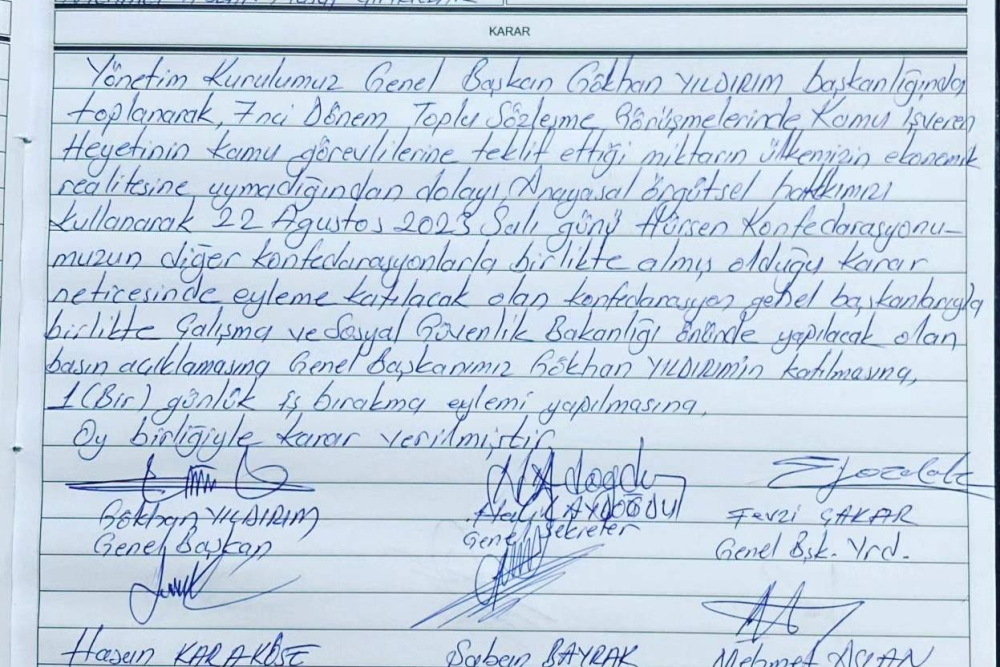 KARAR
Yönetim Kurulumuz Genel Başkan Gökhan YILDIRIM başkanlığında
toplanarak, 7nci Dönem Toplu Sözleşme Görüşmelerinde Kamu İşveren
Heyetinin kamu görevlilerine teklif ettiği miktarın ülkemizin ekonomik
realitesine uymadığından dolayı, Anayasal örgütsel hakkımızı
kullanarak 22 Ağustos 2023 Salı günü Hürsen Konfedarasyonu-
muzun diğer konfedarasyonlarla birlikte almış olduğu karar
neticesinde eyleme katılacak olan konfedarasyon genel başkanlarıyla
birlikte Çalışma ve Sosyal Güvenlik Bakanlığı önünde yapılacak olan
basın açıklamasına Genel Başkanımız Gökhan YILDIRIMın katılmasına,
1 (Bir) günlük iş bırakma eylemi yapılmasına,
Oy birliğiyle karar verilmiştir
Gökhan YILDIRIM AYDOĞDU Fevzi ÇAKAR
Genel Başkan Genel Sekreter Genel Bşk. Yrd.
Hasan KARAKÖSE Şaben BAYRAK Mehmet ASLAN